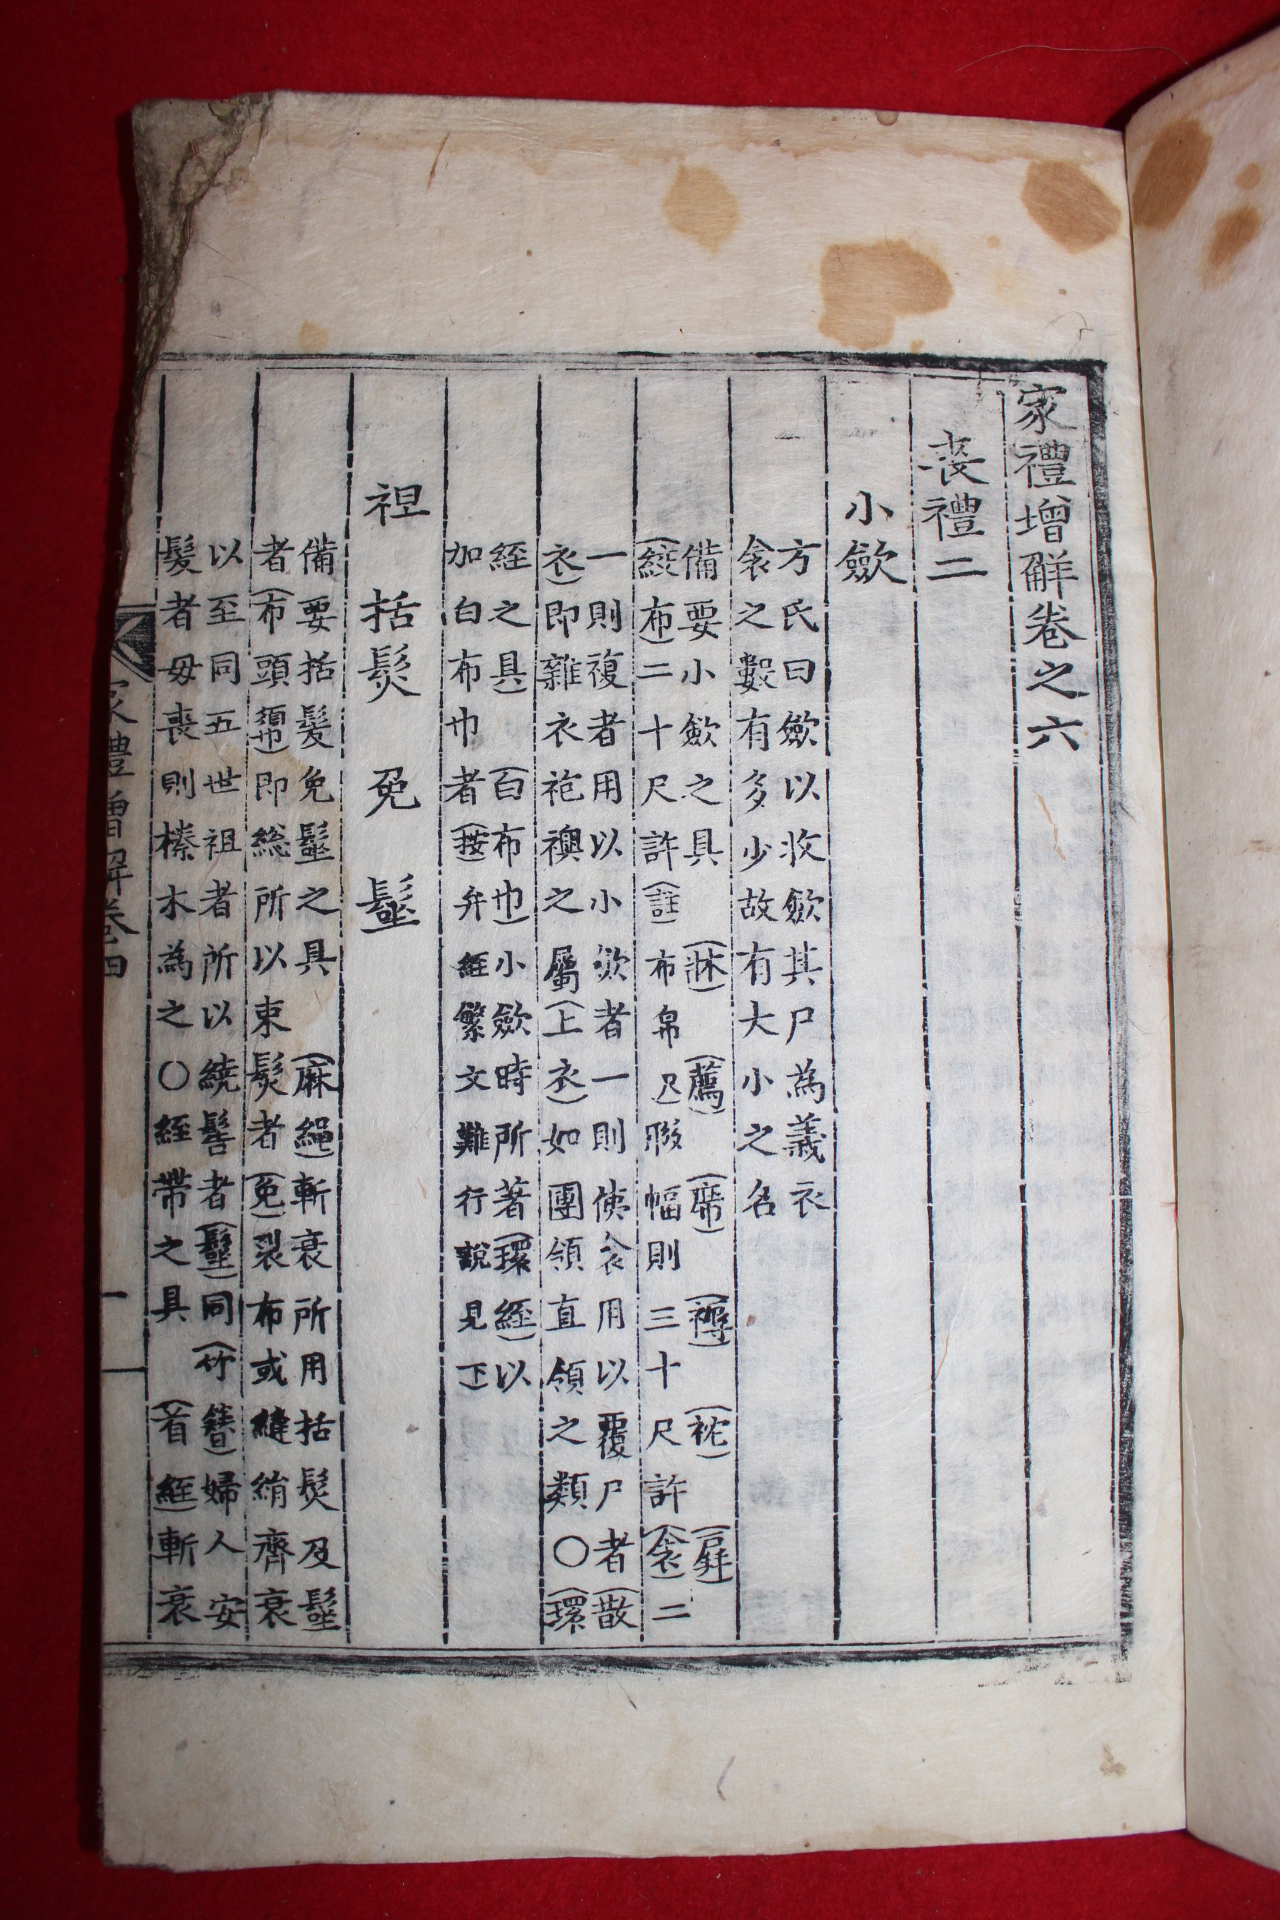 家禮增解卷之六
喪禮二
小斂
方氏曰斂以收斂其尸為義衣
衾之數有多少故有大小之名
備要小斂之具(牀)(薦)(席)(褥)(枕)(屛)
(絞布)二十尺許(註)布帛尺聯幅則三十尺許(衾)二
一則複者用以小斂者一則使衾用以覆尸者(散
衣)即雜衣袍襖之屬(上衣)如團領直領之類○(環
絰之具)(百布巾)小斂時所著(環絰)以
加白布巾者(按弁絰繁文難行說見下)
袒 括髮 免 髽
備要括髮免髽之具(麻繩)斬衰所用括髮及髽
者(布頭𢄼)即総所以束髮者(免)裂布或縫絹齊衰
以至同五世祖者所以繞髻者(髽)同(竹簪)婦人安
髮者毋喪則榛木為之○絰帶之具(首絰)斬衰
家禮增解卷四
一